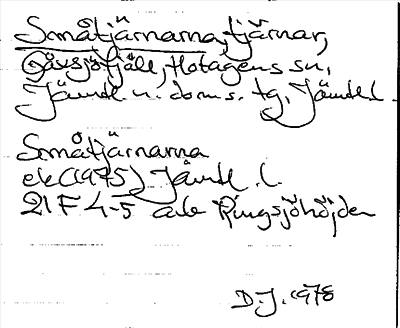 Småtjärnarna, tjärnar,
Gåxsjöfjäll, Hotagens sn,
Jämtl. n. doms. tg, Jämtl. l.
Småtjärnarna
ek (1975) Jämtl. l.
21 F 4-5 ab Ringsjöhöjden
D.J. 1978